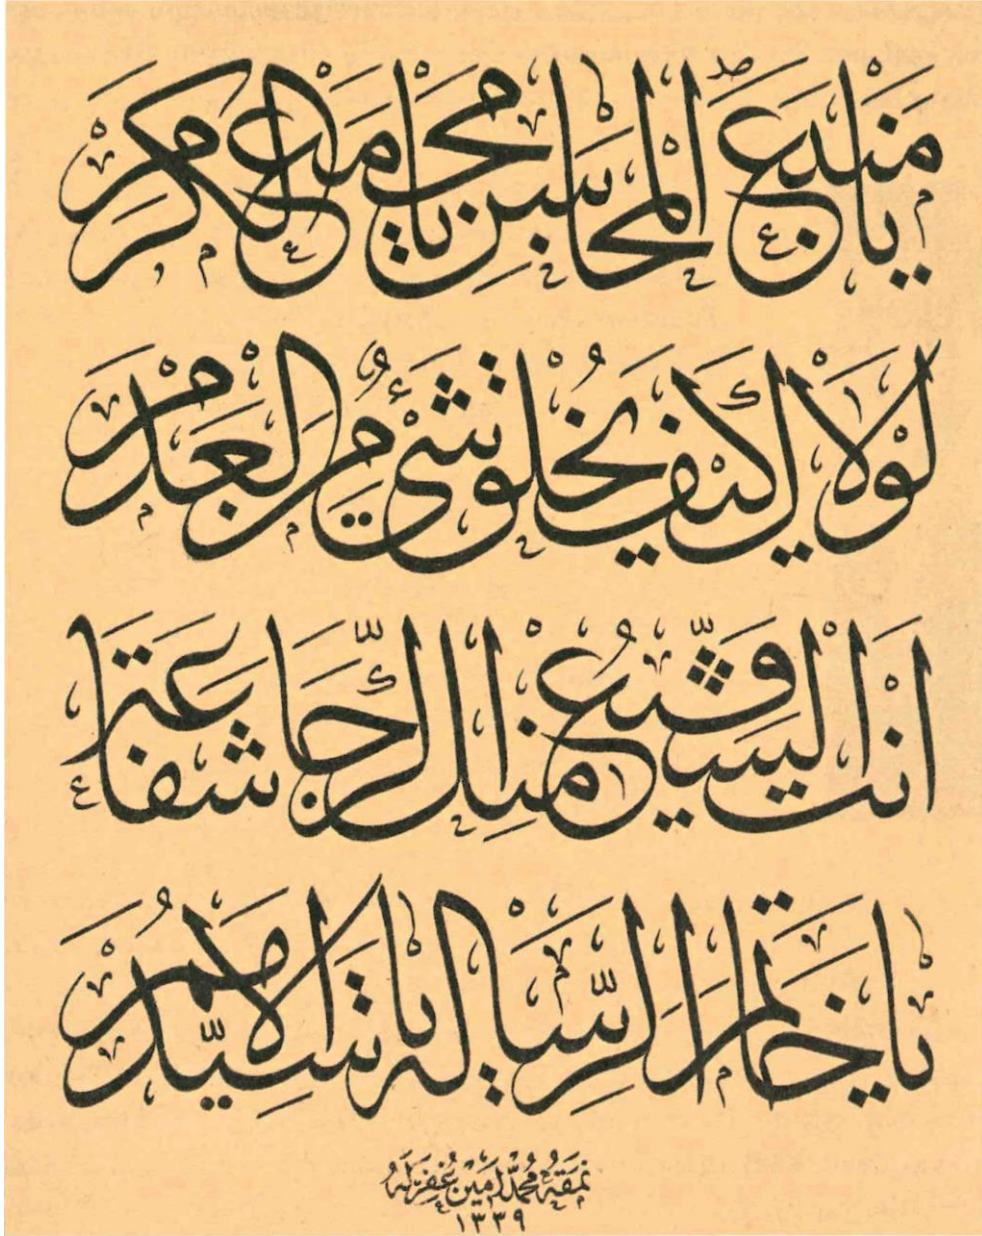 يَا مَنْبَعَ الْمَحَاسِنِ يَا مَجْمَعَ الْكَرَمْ
لَوْلَاكَ لَمْ يَخْلُقْ شَيْءٌ مِنَ الْعَدَمْ
اَنْتَ الشَّفِيعُ مِنْكَ الرَّجَا شَفَاعَة
يَا خَاتَمَ الرِّسَالَةِ يَا سَيِّدَ الْاُمَمْ
نمقه محمد امين غفر له
١٣٣٩